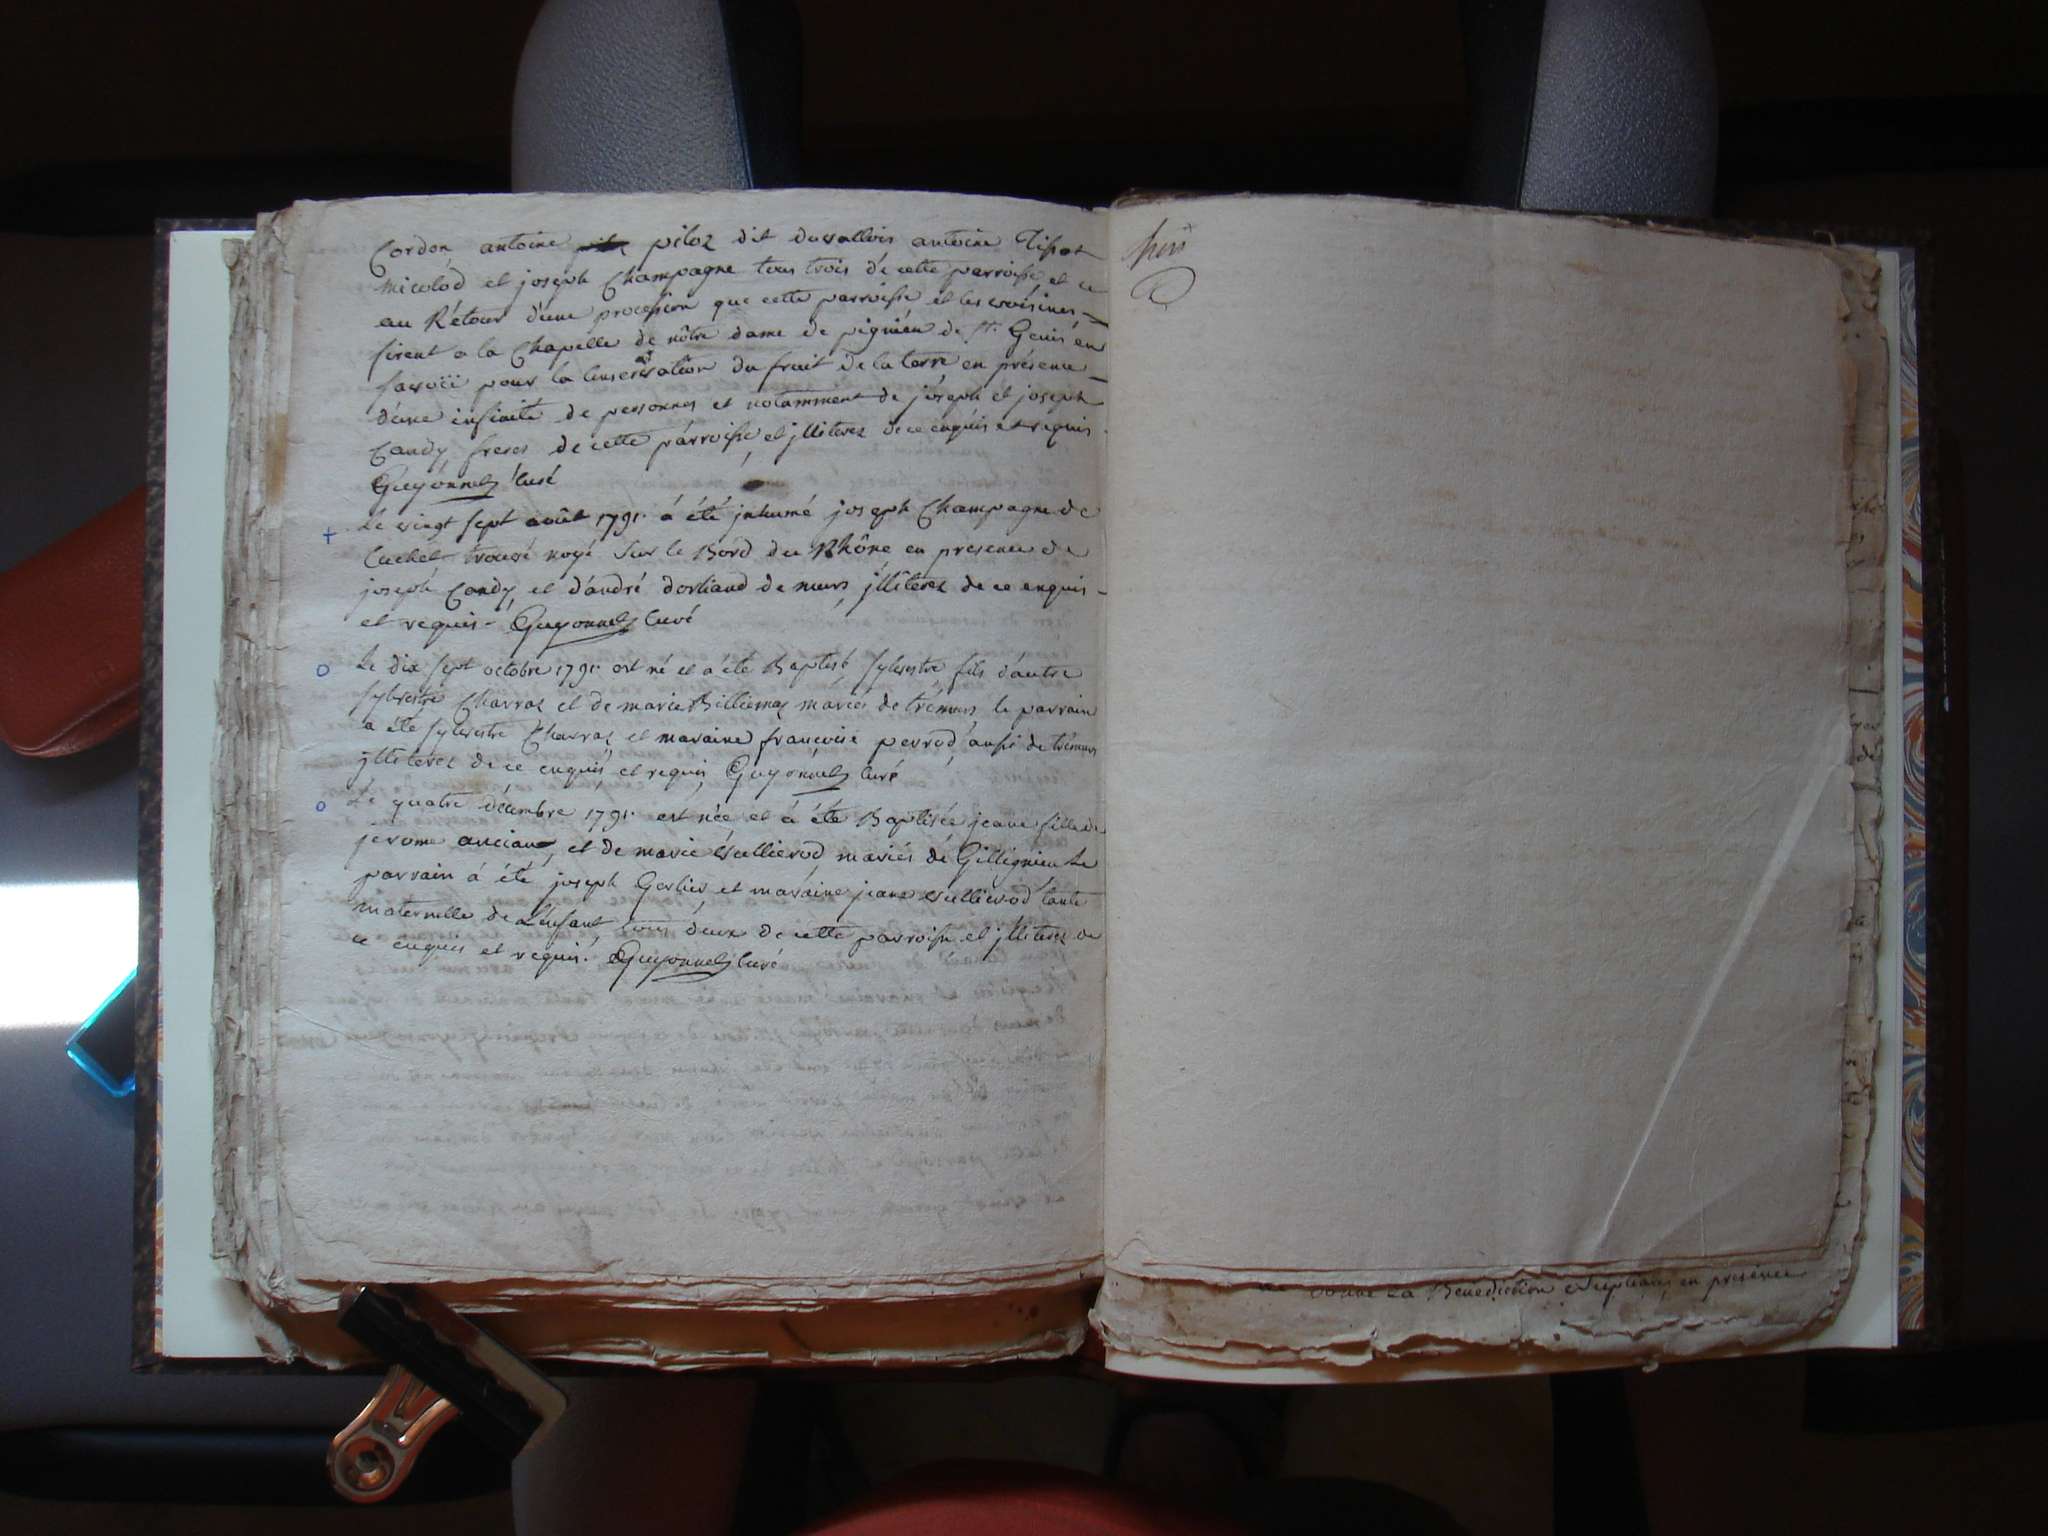 Cordon antoine piloz dit duvallois antoine Tissot
micolod et joseph Champagne tous trois de cette parroisse, et ce
au Rétour d'une procession que cette parroisse et les voisines
firent a la Chapelle de nôtre dame de pignieu de St. Genis en
savoïi pour la conservation du fruit de la terre en présence
d'une infinité de personnes et notamment de joseph et joseph
Candy freres de cette parroisse, et jlliterez de ce enquis et requis.
Guyonnet curé
+ Le vingt sept août 1791. à été jnhumé joseph Champagne de
Cuchet trouvé noyé sur le Bord du Rhône en presence de
joseph Candy, et d'andré dorliand de murs, jlliterez de ce enquis
et requis. Guyonnet Curé
o Le dix sept octobre 1791. est né et a été Baptisé Sylvestre fils d'autre
Sylvestre Charvaz et de marie Billiemaz mariés de trémurs, le parrain
a été Sylvestre Charvaz et maraine françoise perrod, aussi de trémurs
jlliterez de ce enquis, et requis, Guyonnet Curé
o Le quatre décembre 1791. est née et à été Baptisée jeane fille de
jerome anciand, et de marie Vullierod mariés de Gillignieu Le
parrain à été joseph Gerlier, et maraine jeane Vullierod tante
maternelle de L'enfant tous deux de cette parroisse et jlliterez de
ce enquis et requis. Guyonnet Curé
donné La Benediction Nuptiale, en presence